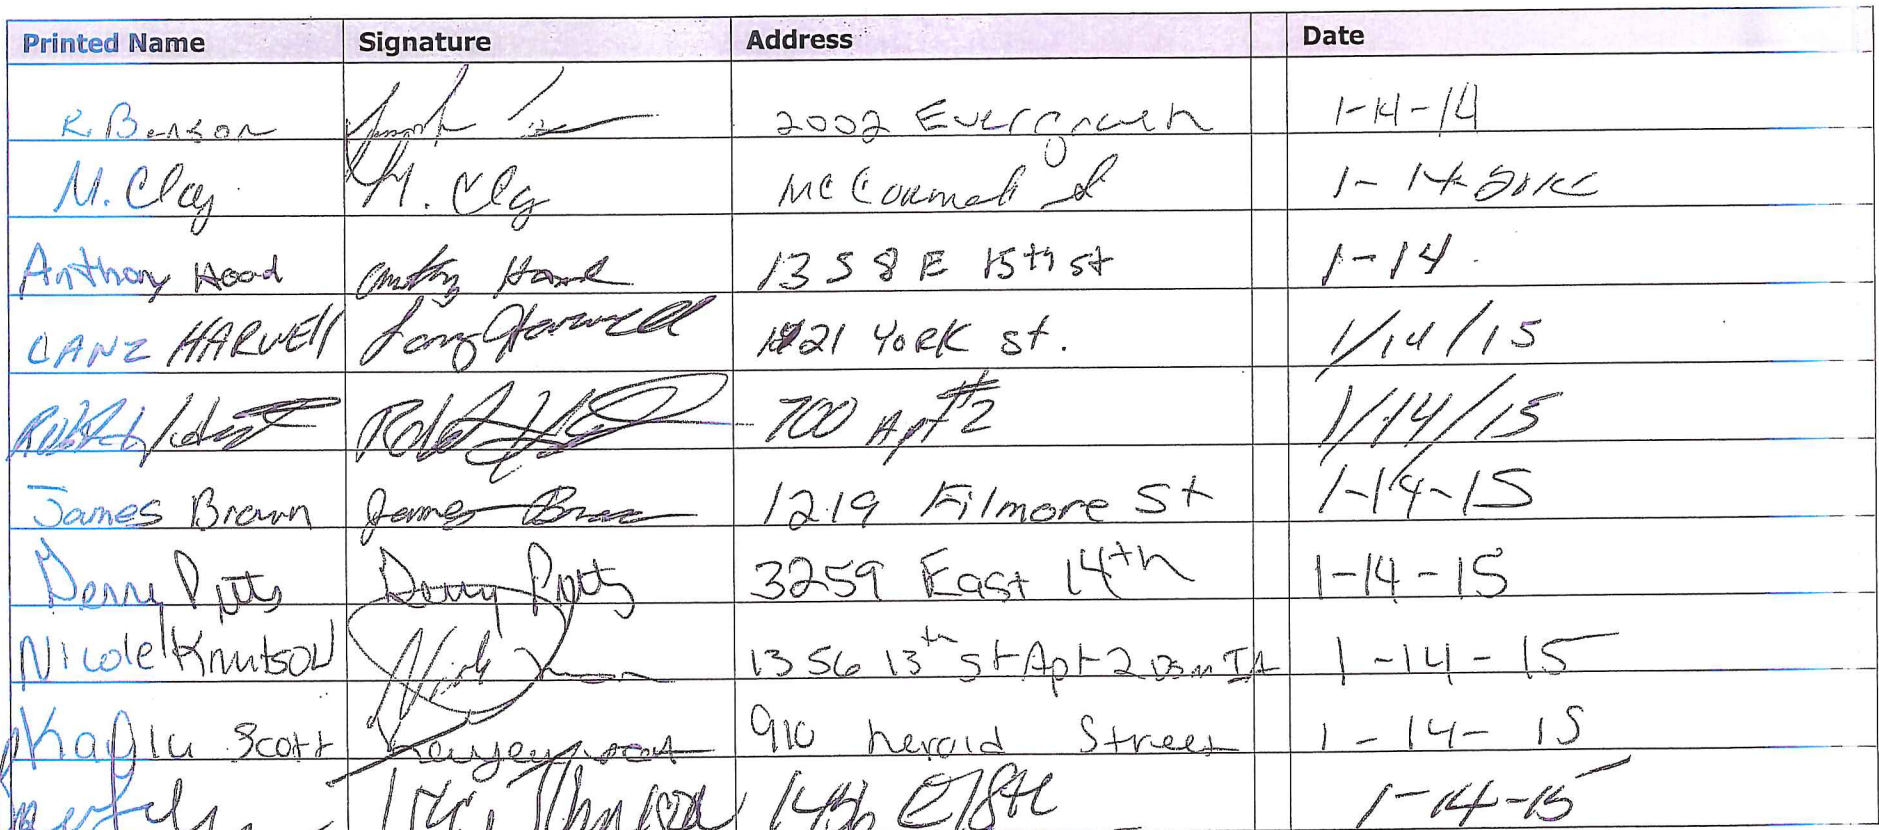 Printed Name Signature Address Date
R Benson 2002 Evergreen 1-14-14
M. Clay M. Clay McCormell 1-14-
Anthony Hood Anthony Hood 1358 E 15th st 1-14
LANZ HARWELL Lanz Harwell 21 YORK st. 1/14/15
Robert 700 Apt #2 1/14/15
James Brown James Brown 1219 Filmore St 1-14-15
Derry Potts Derry Potts 3259 East 14th 1-14-15
Nicole Knutson Nicole 1356 13th St Apt 2 DSM IA 1-14-15
Scott 910 herold Street 1-14-15
Johnson E 18th 1-14-15